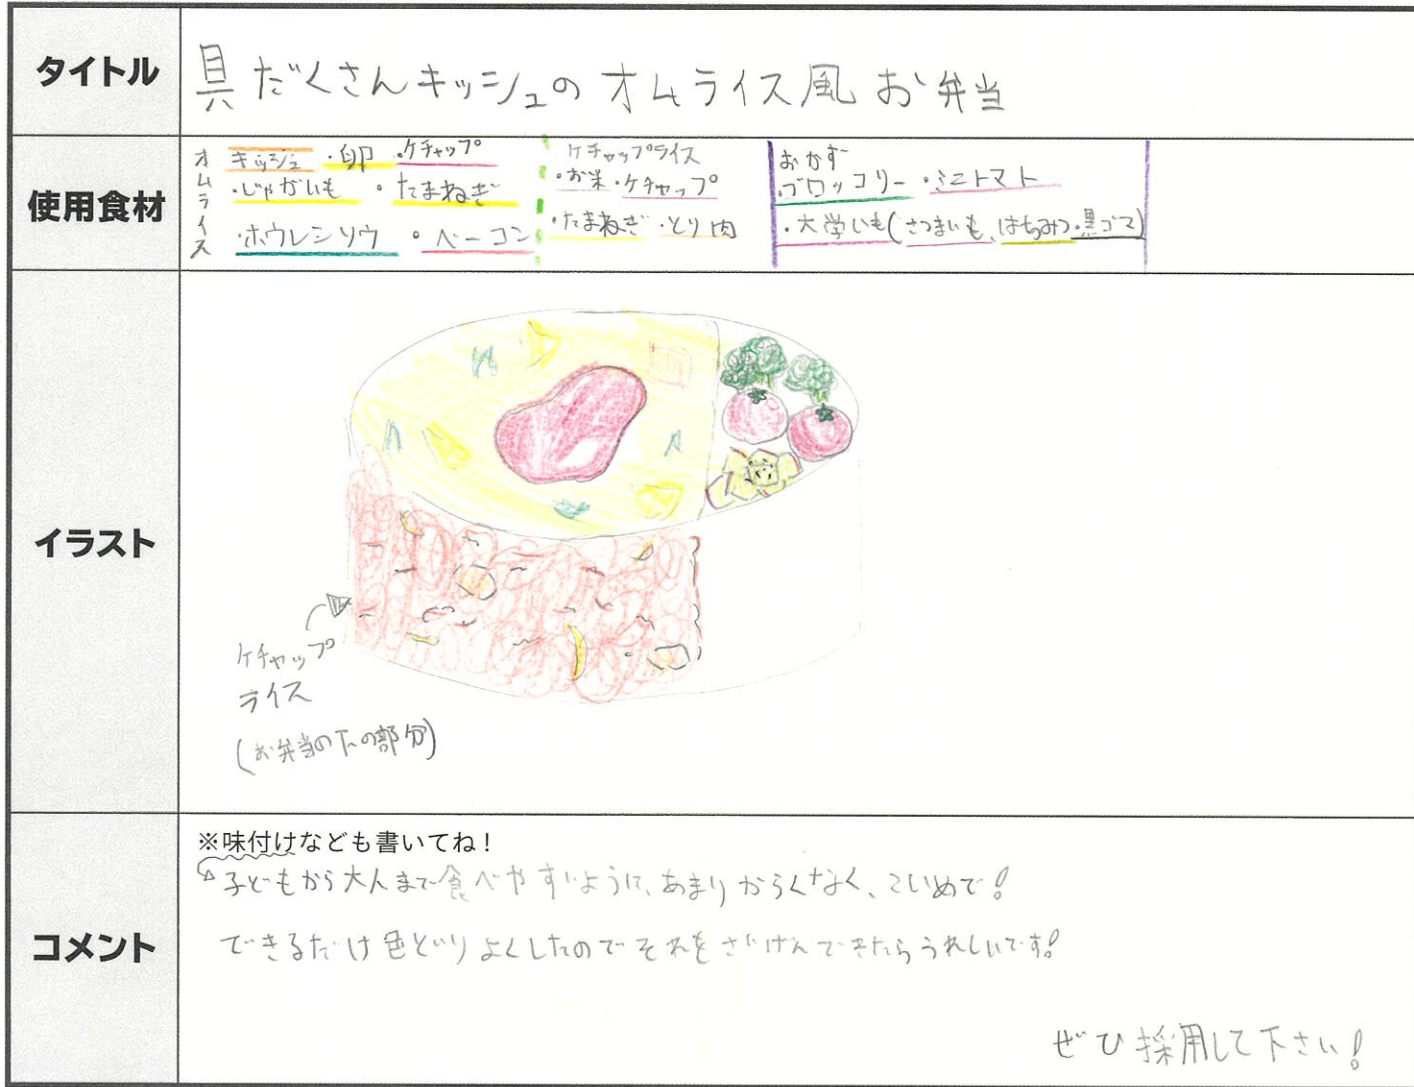 タイトル
具だくさんキッシュのオムライス風お弁当
使用食材
オムライス
キッシュ ・卵 ・ケチャップ
・じゃがいも ・たまねぎ
・ホウレンソウ ・ベーコン
ケチャップライス
・お米・ケチャップ
・たまねぎ ・とり肉
おかず
・ブロッコリー ・ミニトマト
・大学いも(さつまいも、はちみつ・黒ゴマ)
イラスト
ケチャップ
ライス
(お弁当の下の部分)
コメント
※味付けなども書いてね!
子どもから大人まで食べやすいように、あまりからくなく、こいめで!
できるだけ色どりよくしたのでそれをさいげんできたらうれしいです!
ぜひ採用して下さい!